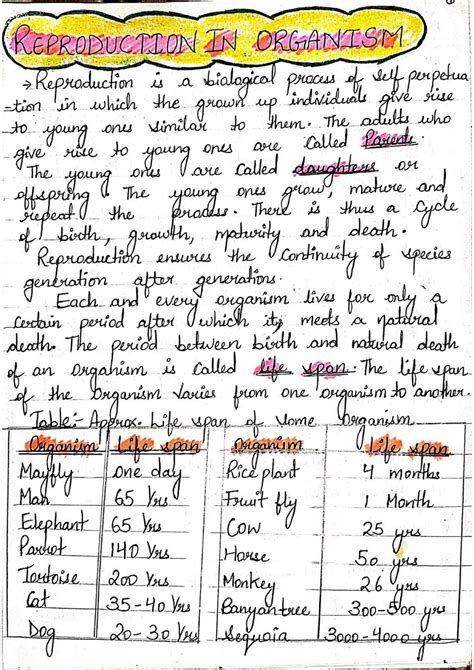 REPRODUCTION IN ORGANISM
→ Reproduction is a biological process of self perpetua
-tion in which the grown up individuals give rise
to young ones similar to them. The adults who
give rise to young ones are called Parents.
The young ones are called daughters or
offspring. The young ones grow, mature and
repeat the process. There is thus a cycle
of birth, growth, maturity and death.
Reproduction ensures the continuity of species
generation after generations.
Each and every organism lives for only a
certain period after which it meets a natural
death. The period between birth and natural death
of an organism is called life span. The life span
of the organism varies from one organism to another.
Table:- Approx. Life span of some Organism
Organism Life span Organism Life span
Mayfly one day Rice plant 4 months
Man 65 Yrs Fruit fly 1 Month
Elephant 65 Yrs Cow 25 yrs
Parrot 140 Yrs Horse 50 yrs
Tortoise 200 Yrs Monkey 26 yrs
Cat 35-40 Yrs Banyan tree 300-500 yrs
Dog 20-30 Yrs Sequoia 3000-4000 yrs